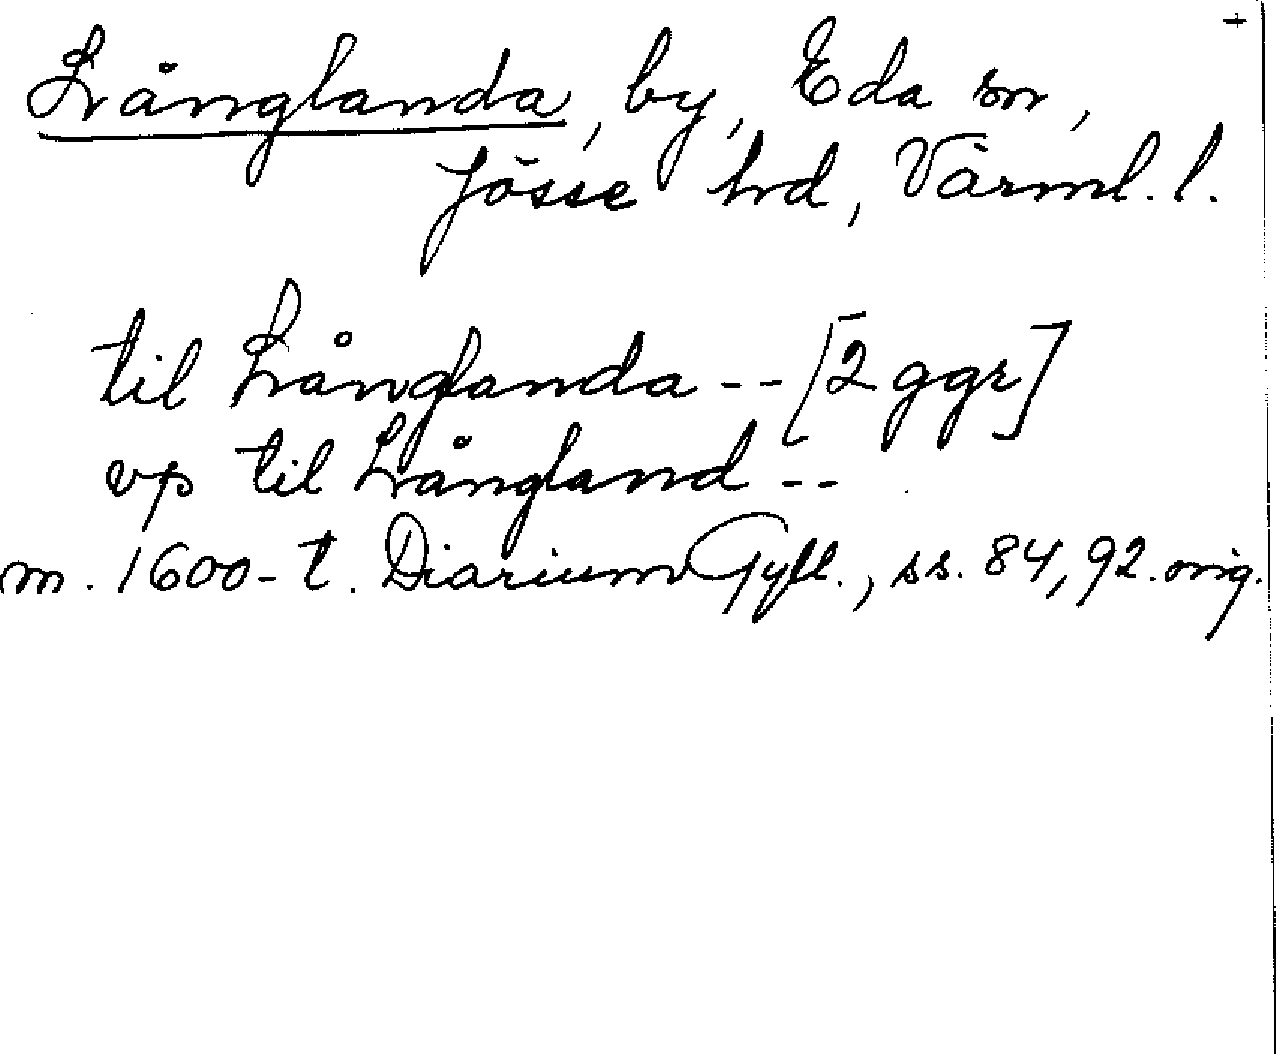 +
Långlanda, by, Eda sn,
Jösse hd, Värml. l.
til Långlanda -- [2 ggr]
vp til Långland --
m. 1600-t. Diarium Gyll., ss. 84, 92. orig.